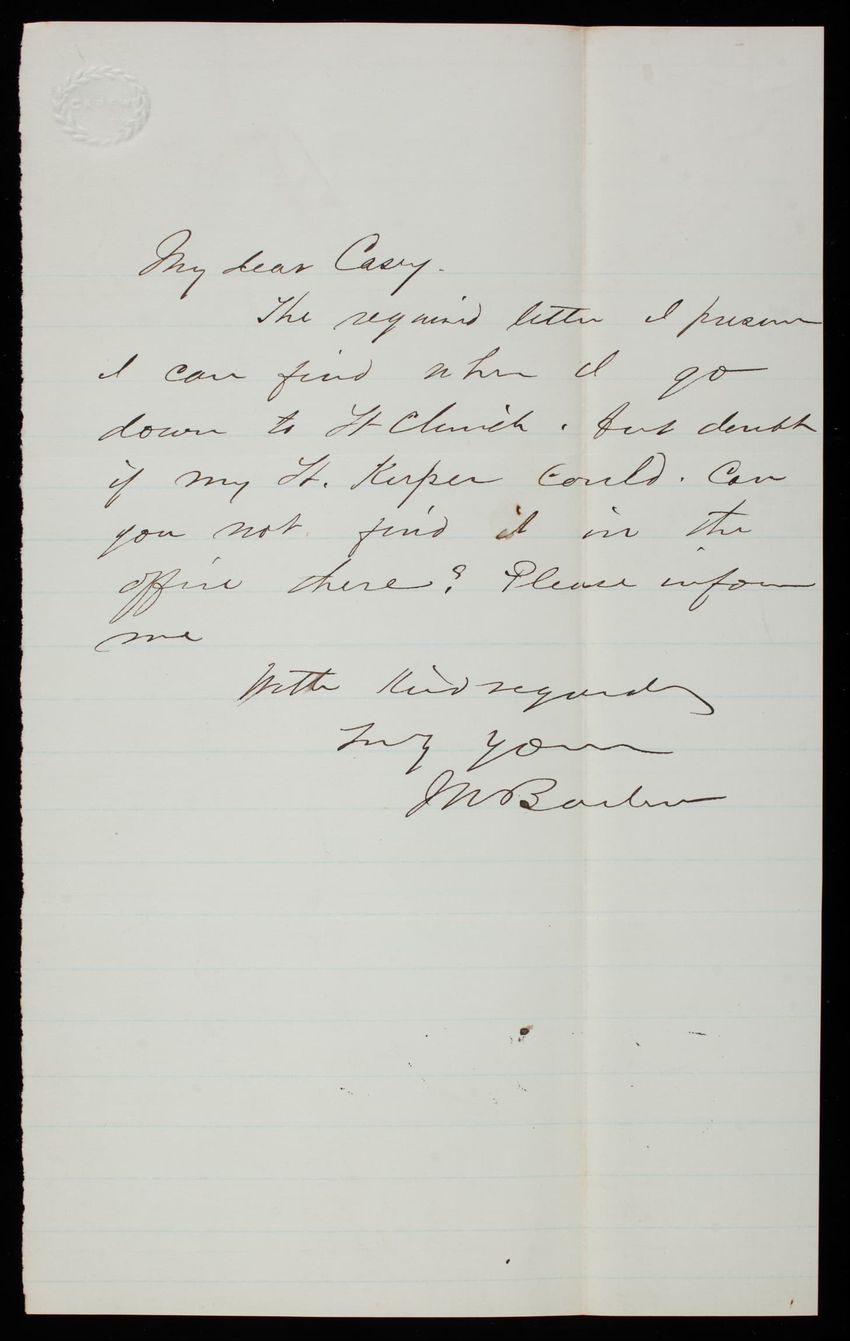 My dear Casey.
The required letter I presume
I can find when I go
down to Ft Clinch. but doubt
if my Ft. Keeper could. Can
you not find it in the
office there? Please inform
me
With Kind regards
Truly Yours
JW Barlow